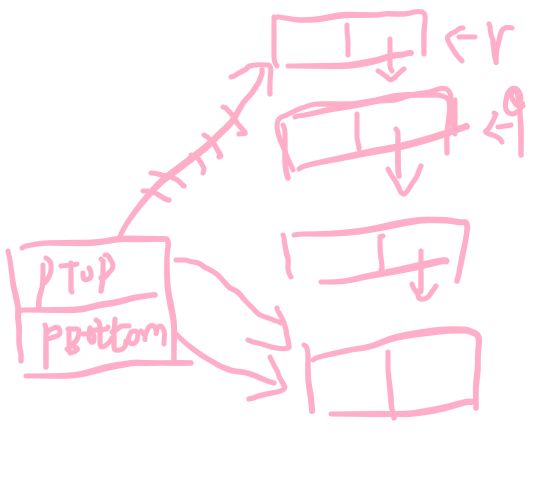 r
q
pTop
pBottom